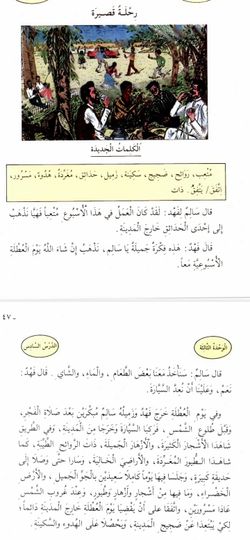 رِحْلَةٌ قَصِيرَة
الْكَلِمَاتُ الْجَدِيدَة
مُتْعِب، رَوَائِح، ضَجِيج، سَكِينَة، زَمِيل، حَدَائِق، مُغَرِّدَة، هُدُوء، مَسْرُور،
اِتَّفَقَ / يَتَّفِقُ. ذَات
قَالَ سَالِمٌ لِفَهْد: لَقَدْ كَانَ الْعَمَلُ فِي هَذَا الْأُسْبُوعِ مُتْعِباً فَهَيَّا نَذْهَبُ
إِلَى إِحْدَى الْحَدَائِقِ خَارِجَ الْمَدِينَةِ.
قَالَ فَهْد: هَذِهِ فِكْرَةٌ جَمِيلَةٌ يَا سَالِم، نَذْهَبُ إِنْ شَاءَ اللهُ يَوْمَ الْعُطْلَةِ
الْأُسْبُوعِيَّةِ مَعاً.
٤٧ -
الْوَحْدَةُ الثَّالِثَة
الدَّرْسُ السَّادِس
قَالَ سَالِم: سَنَأْخُذُ مَعَنَا بَعْضَ الطَّعَامِ، وَالْمَاءِ، وَالشَّايِ. قَالَ فَهْد:
نَعَمْ، وَعَلَيْنَا أَنْ نُعِدَّ السَّيَّارَةَ.
وَفِي يَوْمِ الْعُطْلَةِ خَرَجَ فَهْدٌ وَزَمِيلُهُ سَالِمٌ مُبَكِّرَيْنِ بَعْدَ صَلَاةِ الْفَجْرِ،
وَقَبْلَ طُلُوعِ الشَّمْسِ، فَرَكِبَا السَّيَّارَةَ وَخَرَجَا مِنَ الْمَدِينَةِ، وَفِي الطَّرِيقِ
شَاهَدَا الْأَشْجَارَ الْكَثِيرَةَ، وَالْأَزْهَارَ الْجَمِيلَةَ، ذَاتَ الرَّوَائِحِ الطَّيِّبَةِ، كَمَا
شَاهَدَا الطُّيُورَ الْمُغَرِّدَةَ، وَالْأَرَاضِيَ الْخَالِيَةَ، وَسَارَا حَتَّى وَصَلَا إِلَى
حَدِيقَةٍ كَبِيرَةٍ، وَجَلَسَا فِيهَا يَوْماً كَامِلاً سَعِيدَيْنِ بِالْجَوِّ الْجَمِيلِ، وَالْأَرْضِ
الْخَضْرَاءِ، وَمَا فِيهَا مِنْ أَشْجَارٍ وَأَزْهَارٍ وَطُيُورٍ، وَعِنْدَ غُرُوبِ الشَّمْسِ
عَادَا مَسْرُورَيْنِ، وَاتَّفَقَا عَلَى أَنْ يَقْضِيَا يَوْمَ الْعُطْلَةِ خَارِجَ الْمَدِينَةِ دَائِماً
لِكَيْ يَبْتَعِدَا عَنْ ضَجِيجِ الْمَدِينَةِ، وَيَحْصُلَا عَلَى الْهُدُوءِ وَالسَّكِينَةِ.